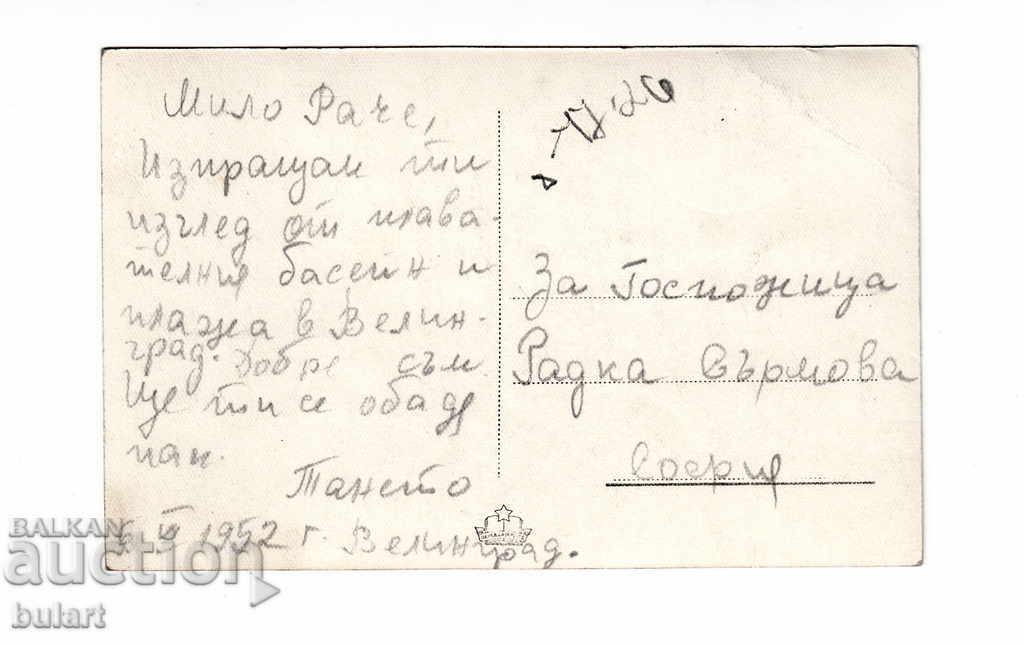 Мило Раче,
Изпращам ти
изглед от плава-
телния басейн и
плажа в Велин-
град. Добре съм
Ще ти се обадя
пак.
Тането
1952 г. Велинград.
За Госпожица
Радка Сърмова
София
BALKAN
auction
bulart